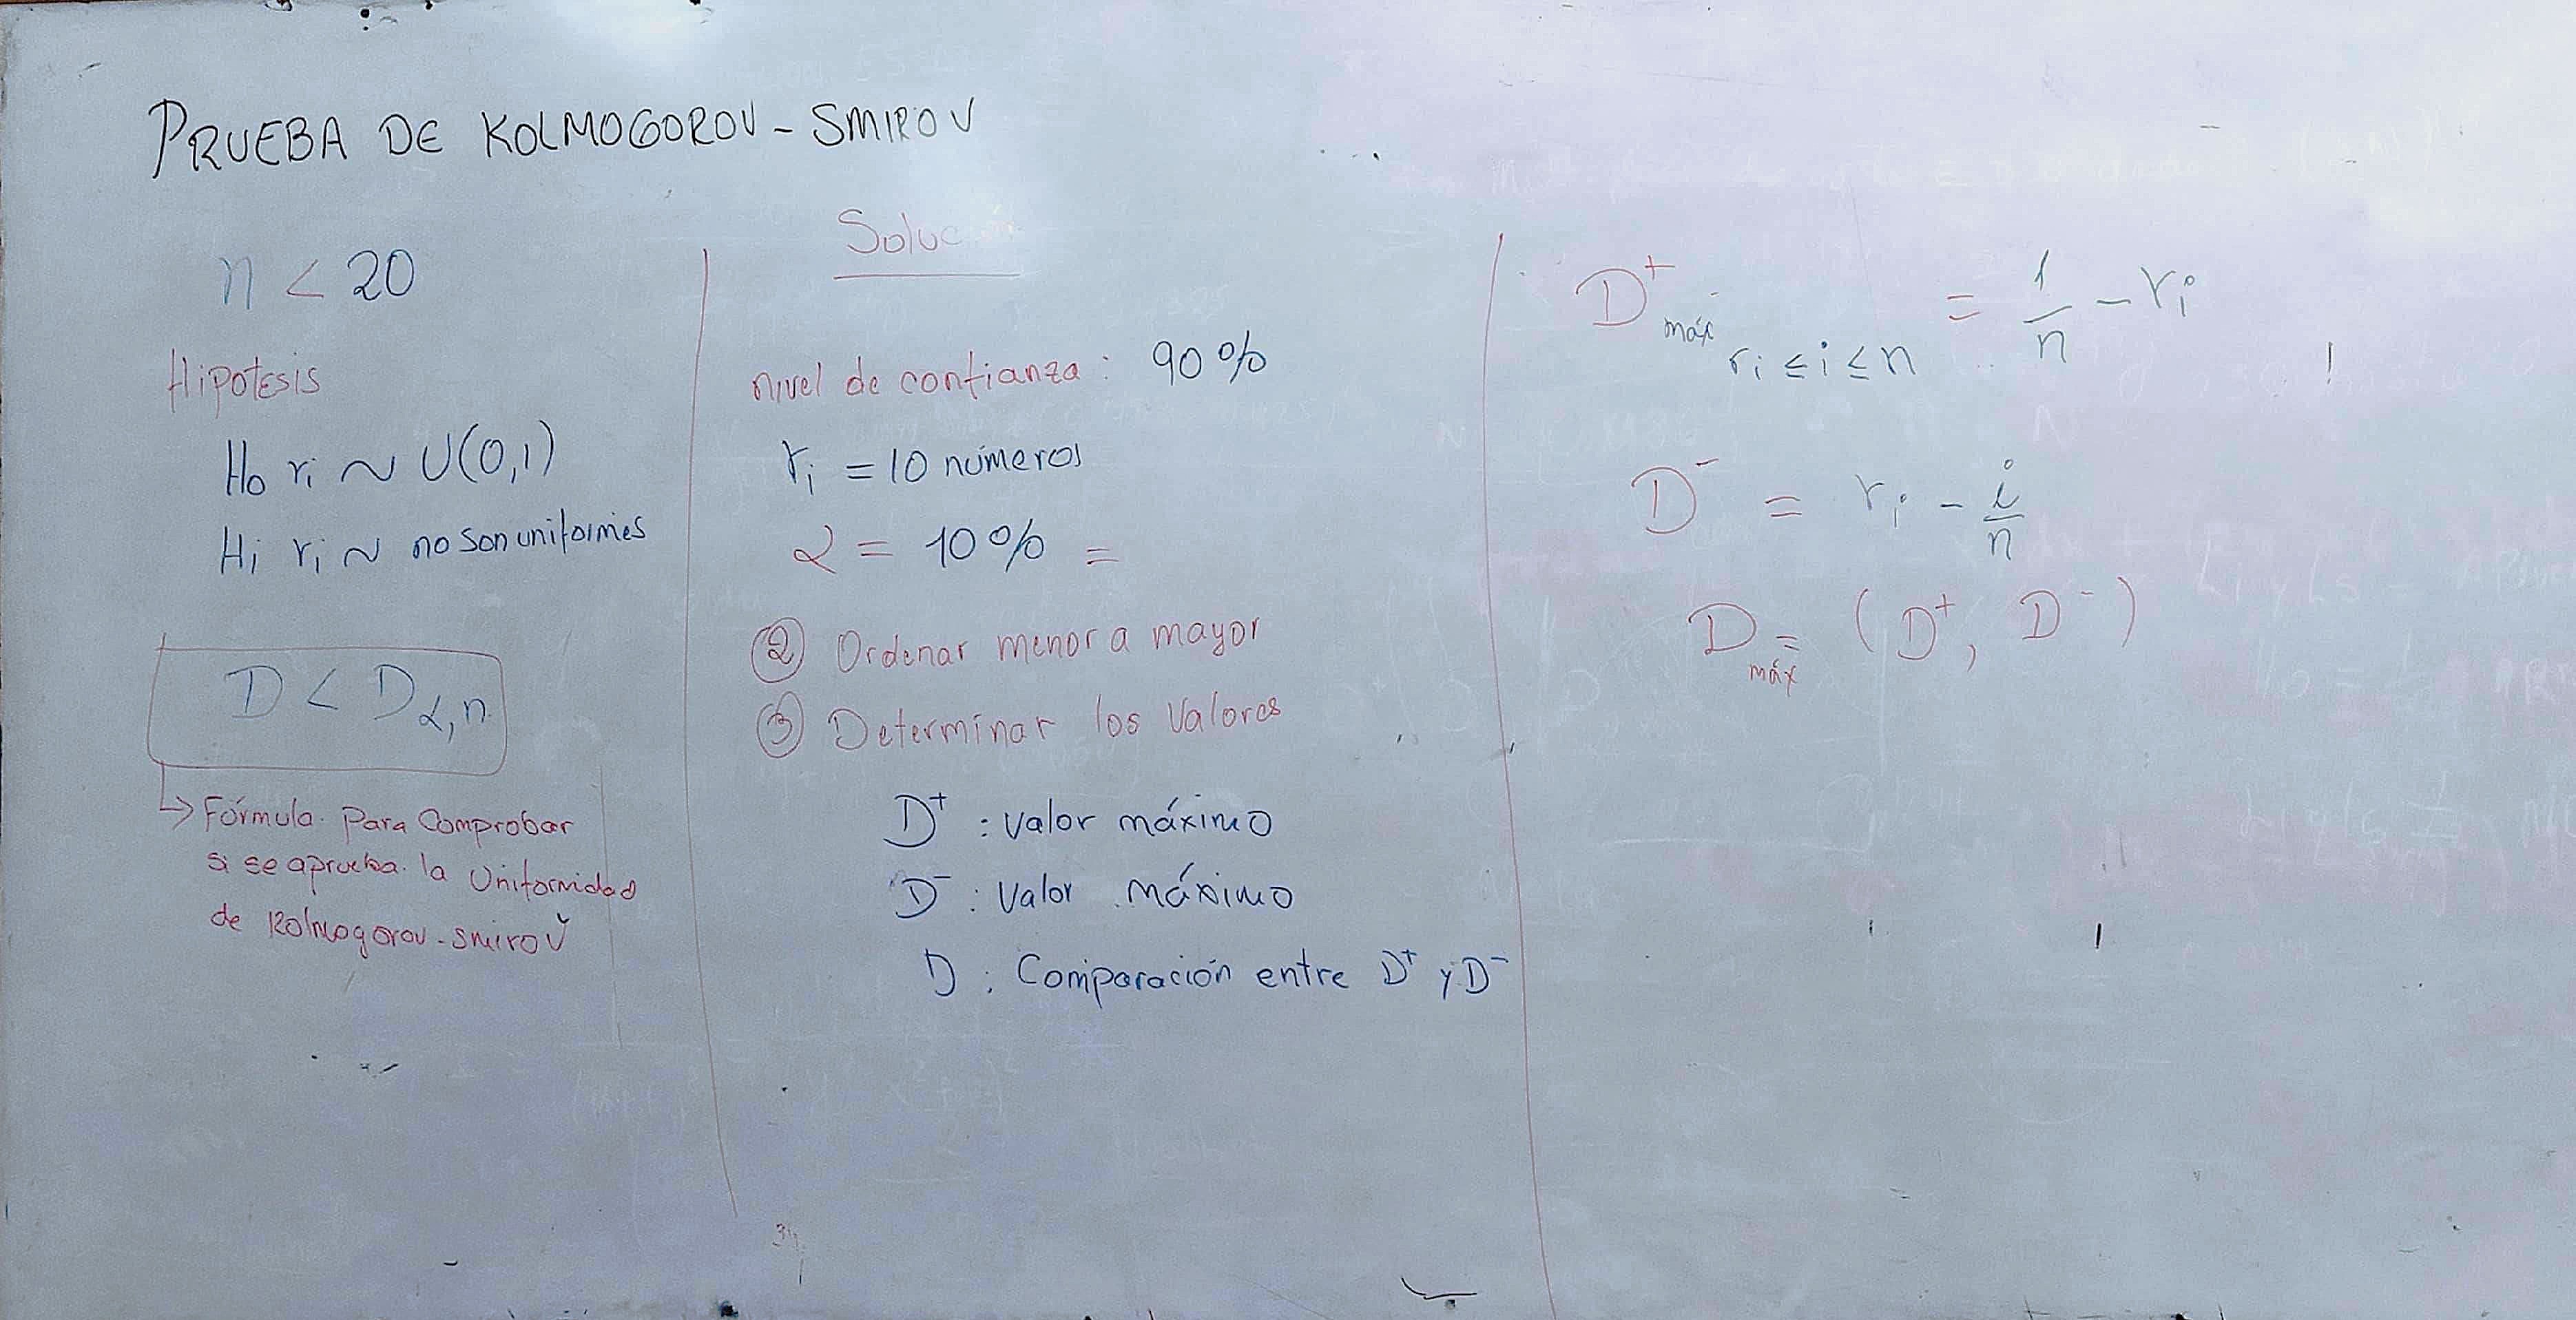 PRUEBA DE KOLMOGOROV - SMIROV
n < 20
Hipotesis
Ho ri ~ U(0,1)
Hi ri ~ no son uniformes
D < Dα,n
↳ Fórmula para Comprobar
si se aprueba la Uniformidad
de Kolmogorov-smirov
Soluc
nivel de confianza: 90%
ri = 10 números
α = 10% =
② Ordenar menor a mayor
③ Determinar los Valores
D⁺ : valor máximo
D⁻ : Valor máximo
D : Comparación entre D⁺ y D⁻
D⁺ máx ri ≤ i ≤ n = 1/n - ri
D⁻ = ri - i/n
D máx = (D⁺, D⁻)